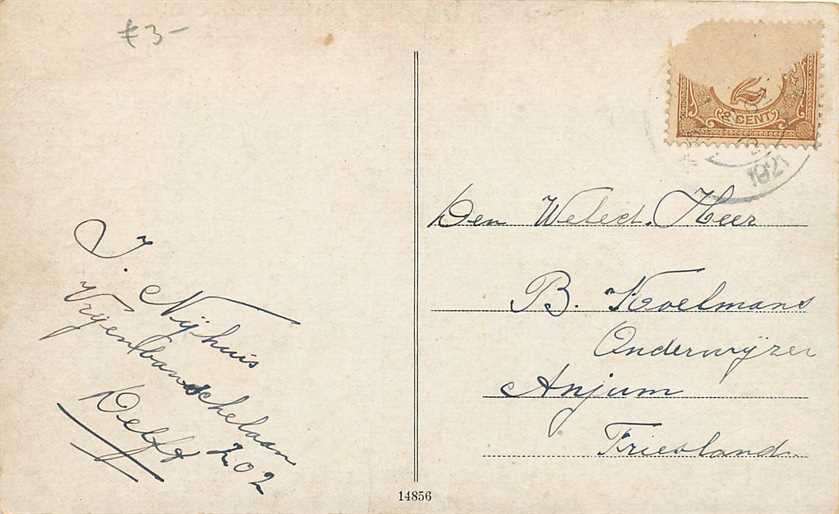 €3-
2
2 CENT
1921
Den Weled. Heer
B. Koelmans
Onderwijzer
Anjum
Friesland.
J. Nijhuis
Vrijenbanschelaan
202
Delft
14856